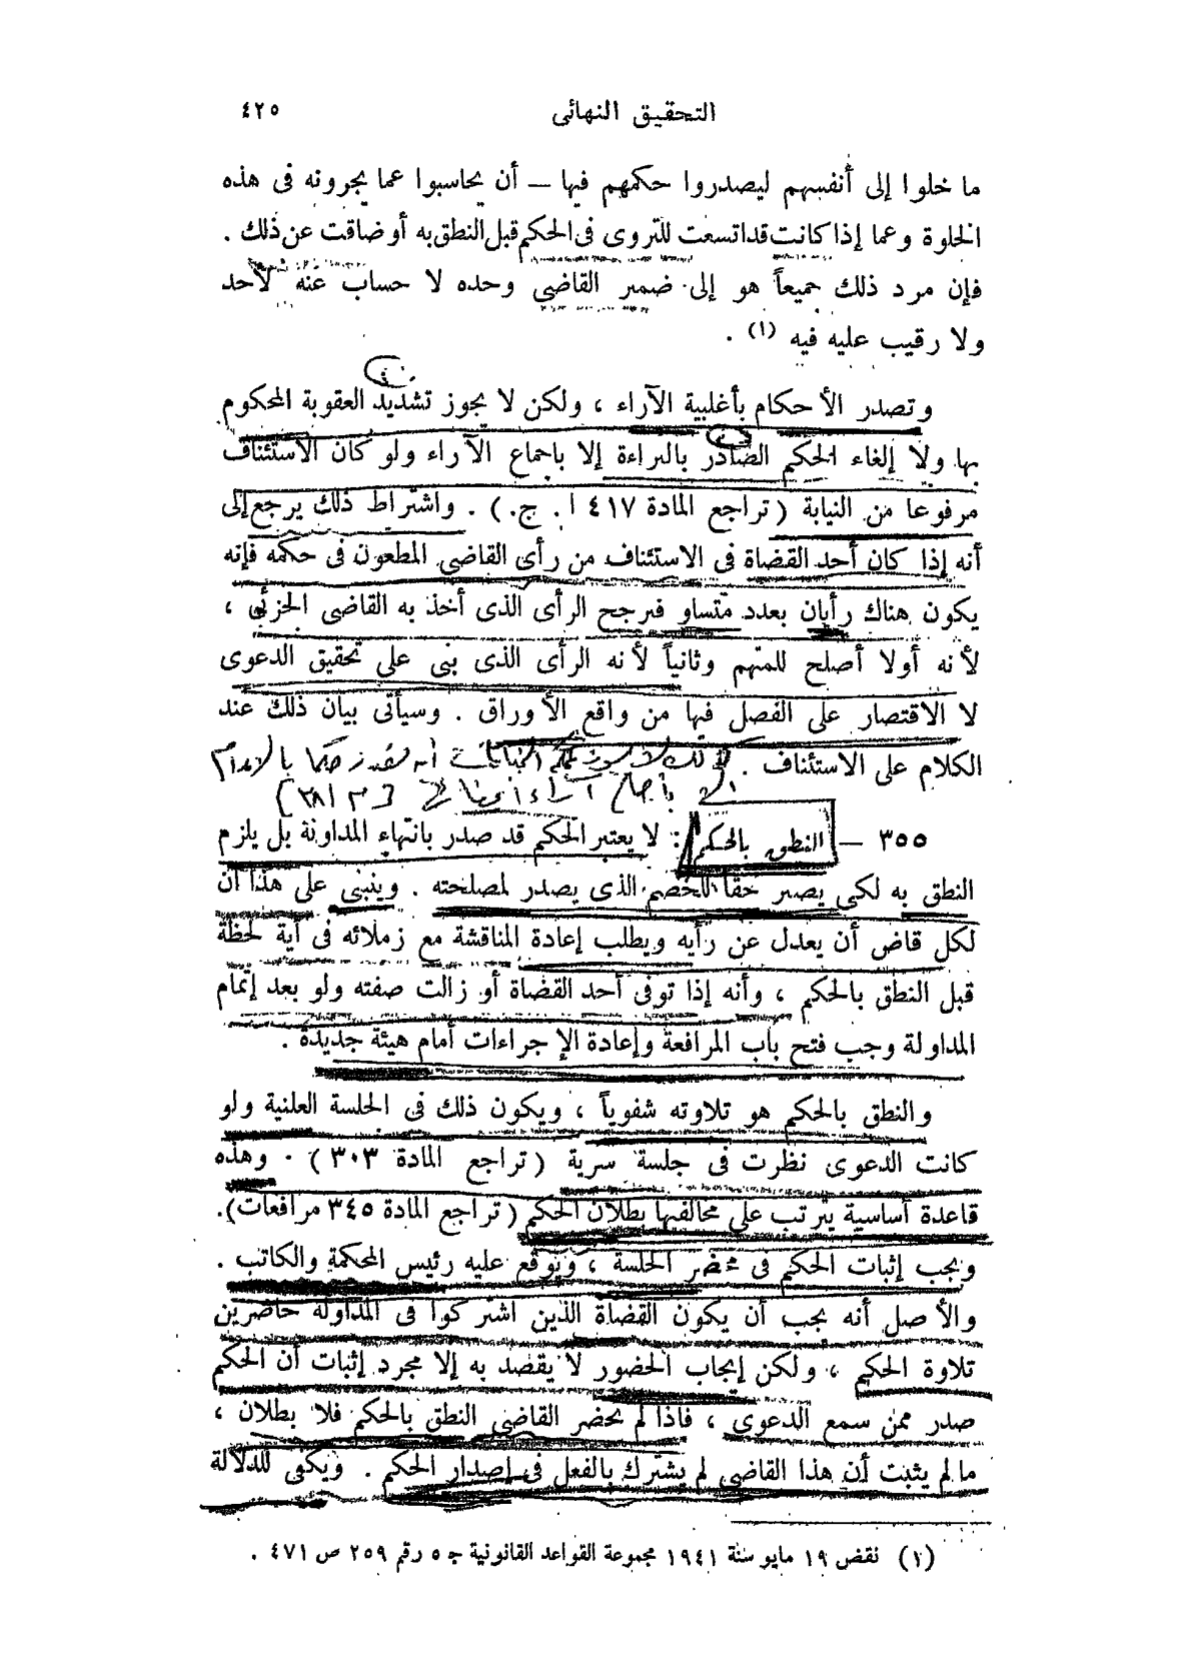 التحقيق النهائى ٤٢٥
ما خلوا إلى أنفسهم ليصدروا حكمهم فيها – أن يحاسبوا عما يجرونه فى هذه
الخلوة وعما إذا كانت قد اتسعت للتروى فى الحكم قبل النطق به أو ضاقت عن ذلك .
فإن مرد ذلك جميعاً هو إلى ضمير القاضى وحده لا حساب عنه لأحد
ولا رقيب عليه فيه (١) .
وتصدر الأحكام بأغلبية الآراء ، ولكن لا يجوز تشديد العقوبة المحكوم
بها ولا إلغاء الحكم الصادر بالبراءة إلا باجماع الآراء ولو كان الاستئناف
مرفوعا من النيابة ( تراجع المادة ٤١٧ ا . ج . ) . واشتراط ذلك يرجع إلى
أنه إذا كان أحد القضاة فى الاستئناف من رأى القاضى المطعون فى حكمه فإنه
يكون هناك رأيان بعدد متساو فيرجح الرأى الذى أخذ به القاضى الجزئى ،
لأنه أولا أصلح للمتهم وثانياً لأنه الرأى الذى بنى على تحقيق الدعوى
لا الاقتصار على الفصل فيها من واقع الأوراق . وسيأتى بيان ذلك عند
الكلام على الاستئناف . كذلك لا يجوز لمحكمة الجنايات أن تصدر حكما بالإعدام
بإجماع آراء [ م ٣٨١ ]
٣٥٥ – النطق بالحكم : لا يعتبر الحكم قد صدر بانتهاء المداولة بل يلزم
النطق به لكى يصير حقاً للخصم الذى يصدر لمصلحته . وينبنى على هذا أن
لكل قاض أن يعدل عن رأيه ويطلب إعادة المناقشة مع زملائه فى آية لحظة
قبل النطق بالحكم ، وأنه إذا توفى أحد القضاة أو زالت صفته ولو بعد إتمام
المداولة وجب فتح باب المرافعة وإعادة الإجراءات أمام هيئة جديدة .
والنطق بالحكم هو تلاوته شفوياً ، ويكون ذلك فى الجلسة العلنية ولو
كانت الدعوى نظرت فى جلسة سرية ( تراجع المادة ٣٠٣ ) . وهذه
قاعدة أساسية يترتب على مخالفتها بطلان الحكم ( تراجع المادة ٣٤٥ مرافعات ) .
ويجب إثبات الحكم فى محضر الجلسة ، ويوقع عليه رئيس المحكمة والكاتب .
والأصل أنه يجب أن يكون القضاة الذين اشتركوا فى المداولة حاضرين
تلاوة الحكم ، ولكن إيجاب الحضور لا يقصد به إلا مجرد إثبات أن الحكم
صدر ممن سمع الدعوى ، فاذا لم يحضر القاضى النطق بالحكم فلا بطلان ،
ما لم يثبت أن هذا القاضى لم يشترك بالفعل فى إصدار الحكم . ويكفى للدلالة
(١) نقض ١٩ مايو سنة ١٩٤١ مجموعة القواعد القانونية ج ٥ رقم ٢٥٩ ص ٤٧١ .